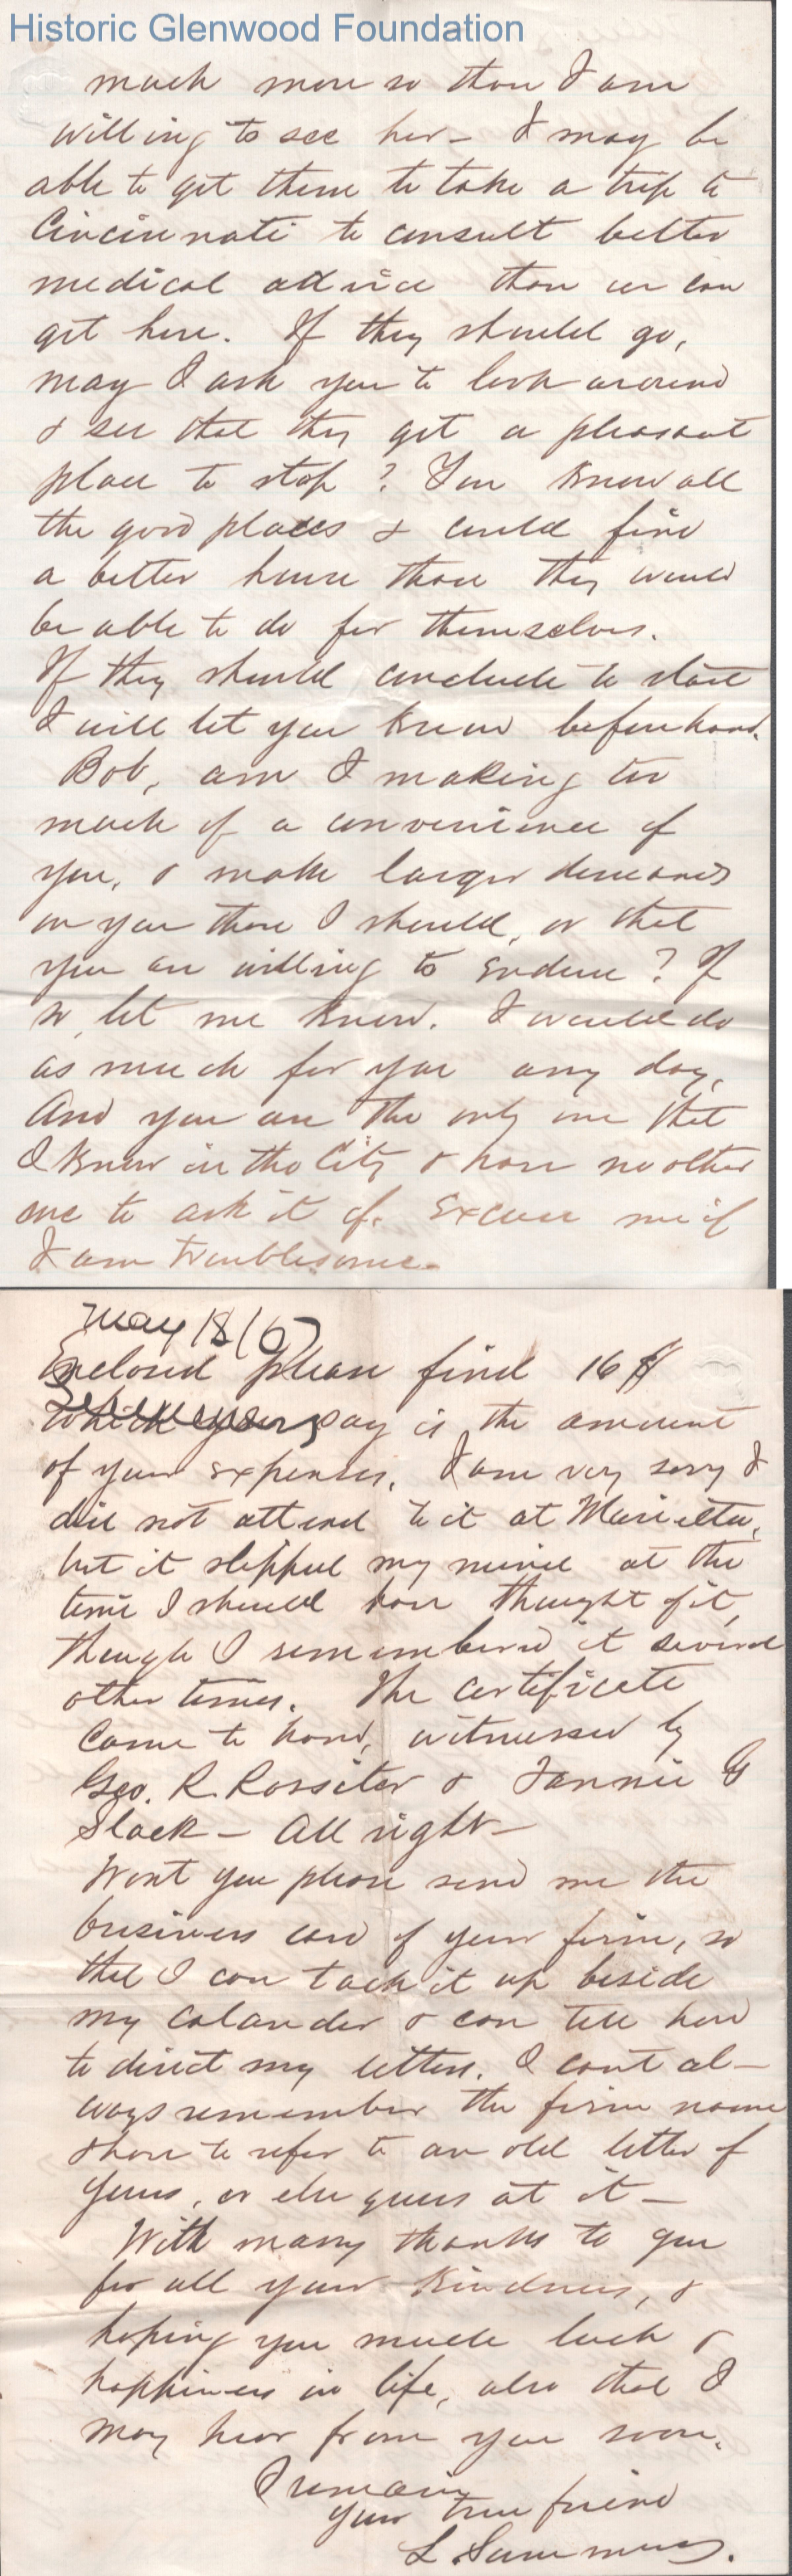 Historic Glenwood Foundation
much more so than I am
willing to see her – I may be
able to get them to take a trip to
Cincinnati to consult better
medical advice than we can
get here. If they should go,
may I ask you to look around
& see that they get a pleasant
place to stop? You know all
the good places & could find
a better house than they would
be able to do for themselves.
If they should conclude to start
I will let you know beforehand.
Bob, am I making too
much of a convenience of
you, & make larger demands
on you than I should, or that
you are willing to endure? If
so, let me know. I would do
as much for you any day,
And you are the only one that
I know in the City & have no other
one to ask it of. Excuse me if
I am troublesome –
May 18/67
Enclosed please find 16 $
which you say is the amount
of your expenses. I am very sorry I
did not attend to it at Marietta,
but it slipped my mind at the
time I should have thought of it,
though I remembered it several
other times. The certificate
came to hand, witnessed by
Geo. R. Rossiter & Fannie G
Slack – All right –
Wont you please send me the
business card of your firm, so
that I can tack it up beside
my calander & can tell how
to direct my letters. I cant al–
ways remember the firm name
& have to refer to an old letter of
yours, or else guess at it –
With many thanks to you
for all your kindness, &
hoping you much luck &
happiness in life, also that I
may hear from you soon,
I remain
your true friend
L. Summers.